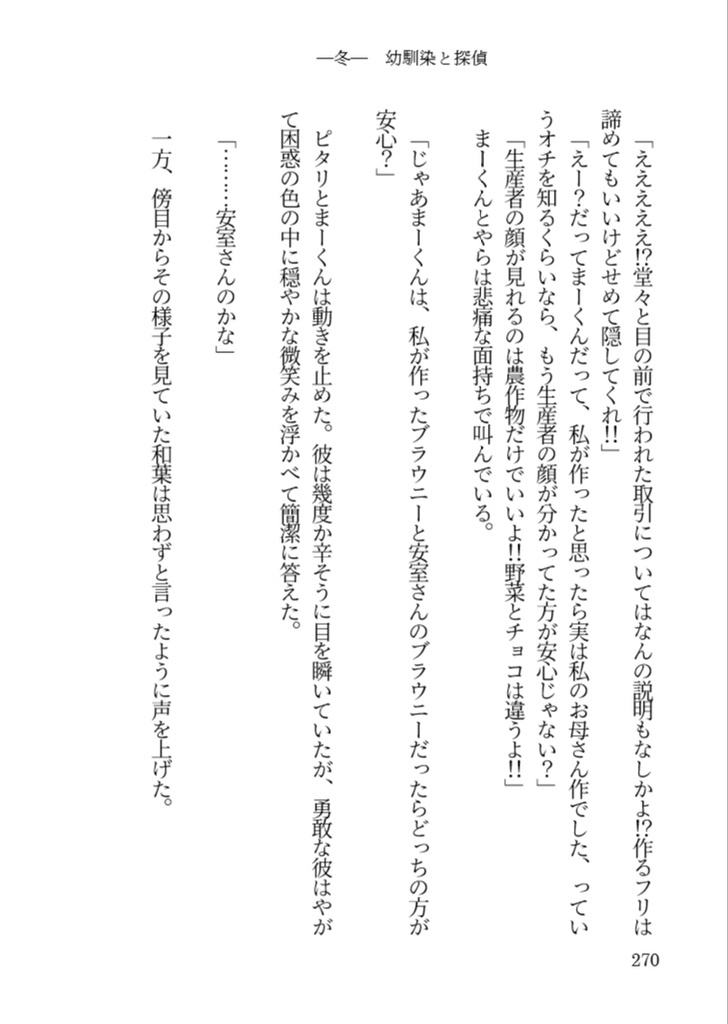 ―冬―　幼馴染と探偵
「えええええ!?堂々と目の前で行われた取引についてはなんの説明もなしかよ!?作るフリは
諦めてもいいけどせめて隠してくれ!!」
「えー？だってまーくんだって、私が作ったと思ったら実は私のお母さん作でした、ってい
うオチを知るくらいなら、もう生産者の顔が分かってた方が安心じゃない？」
「生産者の顔が見れるのは農作物だけでいいよ!!野菜とチョコは違うよ!!」
まーくんとやらは悲痛な面持ちで叫んでいる。
「じゃあまーくんは、私が作ったブラウニーと安室さんのブラウニーだったらどっちの方が
安心？」
ピタリとまーくんは動きを止めた。彼は幾度か辛そうに目を瞬いていたが、勇敢な彼はやが
て困惑の色の中に穏やかな微笑みを浮かべて簡潔に答えた。
「………安室さんのかな」
一方、傍目からその様子を見ていた和葉は思わずと言ったように声を上げた。
270